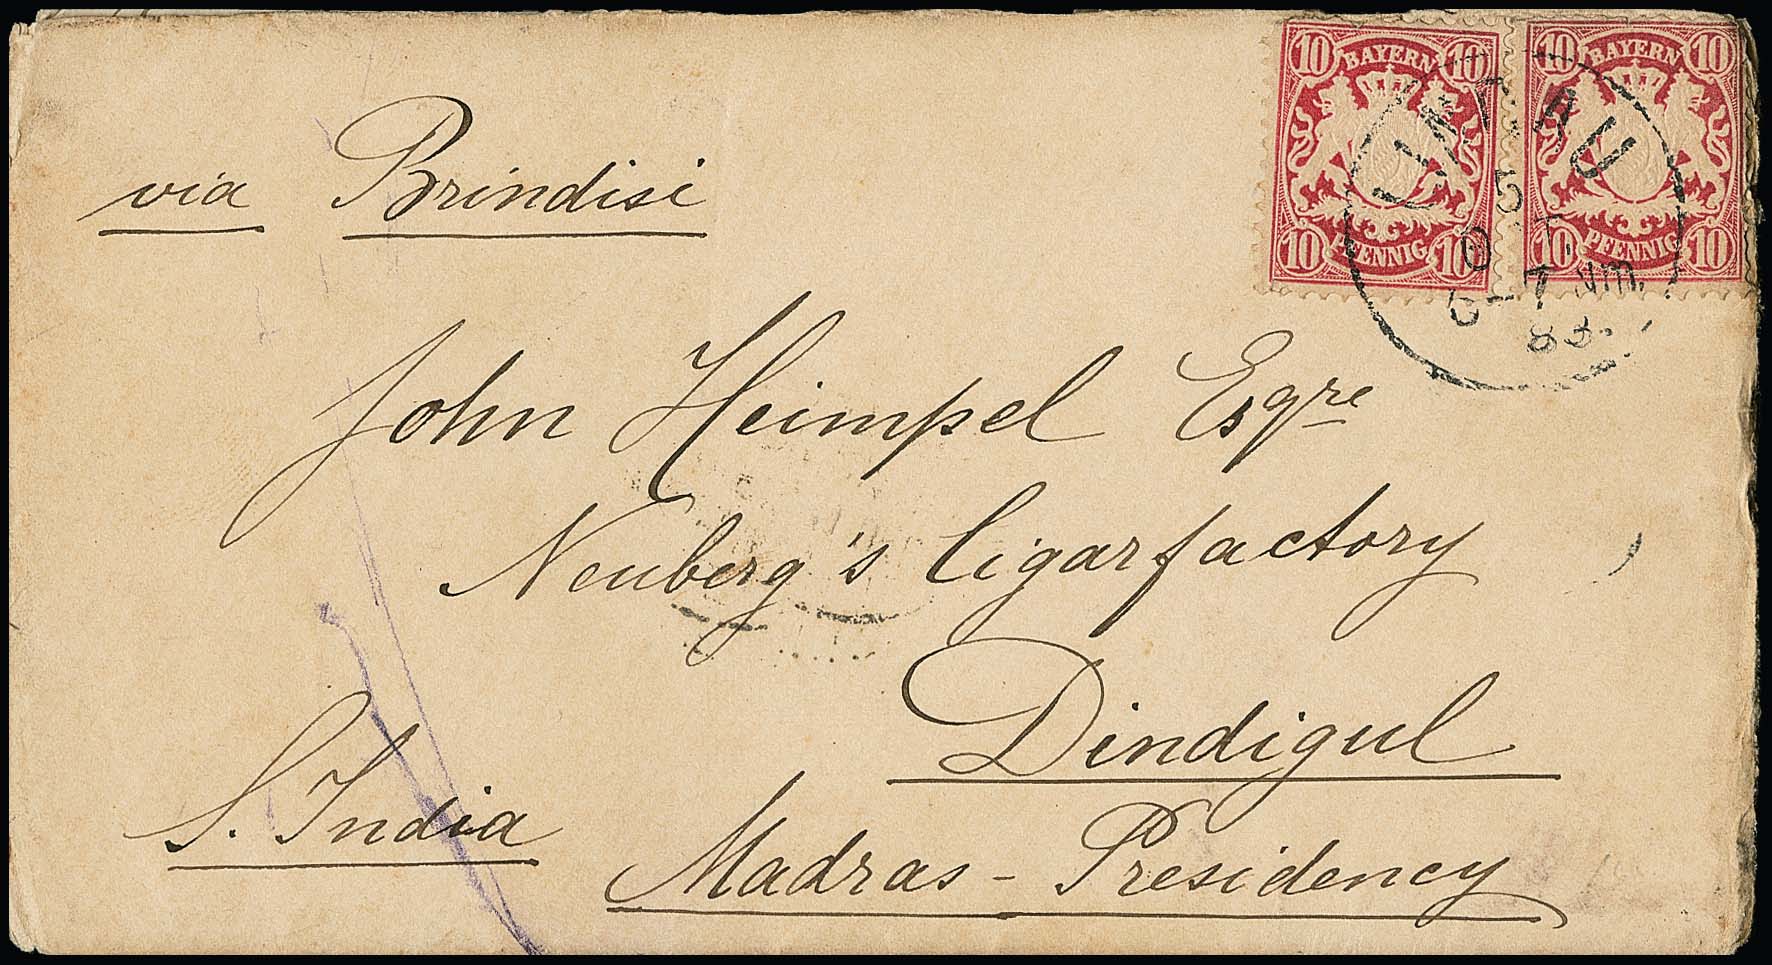 10 BAYERN 10
10 PFENNIG 10
10 BAYERN 10
10 PFENNIG 10
LINDAU
5
6-7 NM.
83.
via Brindisi
John Heimpel Esqre
Neuberg's Cigarfactory
Dindigul
S. India
Madras - Presidency